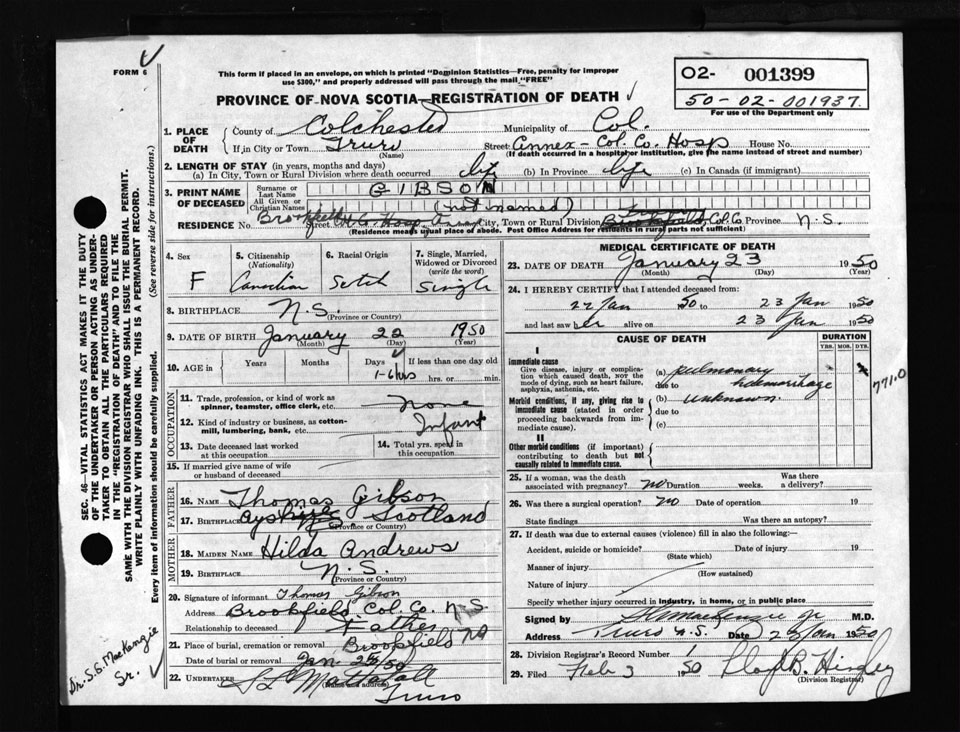 FORM 6
This form if placed in an envelope, on which is printed "Dominion Statistics—Free, penalty for improper
use $300," and properly addressed will pass through the mail "FREE"
PROVINCE OF NOVA SCOTIA—REGISTRATION OF DEATH
O2- 001399
50-02-001937
For use of the Department only
SEC. 46—VITAL STATISTICS ACT MAKES IT THE DUTY
OF THE UNDERTAKER OR PERSON ACTING AS UNDER-
TAKER TO OBTAIN ALL THE PARTICULARS REQUIRED
IN THE "REGISTRATION OF DEATH" AND TO FILE THE
SAME WITH THE DIVISION REGISTRAR WHO SHALL ISSUE THE BURIAL PERMIT.
WRITE PLAINLY WITH UNFADING INK. THIS IS A PERMANENT RECORD.
Every item of information should be carefully supplied. (See reverse side for instructions.)
1. PLACE OF DEATH
County of Colchester Municipality of Col.
If in City or Town Truro Street Annex - Col. Co. Hosp House No.
(Name) (If death occurred in a hospital or institution, give the name instead of street and number)
2. LENGTH OF STAY (in years, months and days)
(a) In City, Town or Rural Division where death occurred life (b) In Province life (c) In Canada (if immigrant)
3. PRINT NAME OF DECEASED
Surname or Last Name GIBSON
All Given or Christian Names (not named)
RESIDENCE No. Brookfield Street Hosp. City, Town or Rural Division Col. Co Province N.S.
(Residence means usual place of abode. Post Office Address for residents in rural parts not sufficient)
4. Sex
F
5. Citizenship
(Nationality)
Canadian
6. Racial Origin
Scotch
7. Single, Married,
Widowed or Divorced
(write the word)
Single
8. BIRTHPLACE N.S.
(Province or Country)
9. DATE OF BIRTH January 22 1950
(Month) (Day) (Year)
10. AGE in Years Months Days If less than one day old
1-6 hrs hrs. or min.
OCCUPATION
11. Trade, profession, or kind of work as
spinner, teamster, office clerk, etc. None
12. Kind of industry or business, as cotton-
mill, lumbering, bank, etc. Infant
13. Date deceased last worked
at this occupation
14. Total yrs. spent in
this occupation
15. If married give name of wife
or husband of deceased
FATHER
16. NAME Thomas Gibson
17. BIRTHPLACE Ayshire Scotland
(Province or Country)
MOTHER
18. MAIDEN NAME Hilda Andrews
19. BIRTHPLACE N.S.
(Province or Country)
20. Signature of informant Thomas Gibson
Address Brookfield, Col. Co. N.S.
Relationship to deceased Father
21. Place of burial, cremation or removal Brookfield NS
Date of burial or removal Jan 50
22. UNDERTAKER Mattatall
(Name and address)
Truro
Dr. S.S. MacKenzie
Sr.
MEDICAL CERTIFICATE OF DEATH
23. DATE OF DEATH January 23 1950
(Month) (Day) (Year)
24. I HEREBY CERTIFY that I attended deceased from:
22 Jan 50 to 23 Jan 1950
and last saw her alive on 23 Jan 1950
CAUSE OF DEATH
DURATION
YRS. MOS. DYS.
I
Immediate cause
Give disease, injury or complica-
tion which caused death, not the
mode of dying, such as heart failure,
asphyxia, asthenia, etc.
(a) pulmonary
due to haemorrhage
771.0
Morbid conditions, if any, giving rise to
immediate cause (stated in order
proceeding backwards from im-
mediate cause).
(b) unknown
due to
(c)
II
Other morbid conditions (if important)
contributing to death but not
causally related to immediate cause.
25. If a woman, was the death
associated with pregnancy? no Duration weeks. Was there
a delivery?
26. Was there a surgical operation? no Date of operation 19
State findings Was there an autopsy?
27. If death was due to external causes (violence) fill in also the following:—
Accident, suicide or homicide? Date of injury 19
(State which)
Manner of injury
(How sustained)
Nature of injury
Specify whether injury occurred in industry, in home, or in public place
Signed by Jr M.D.
Address Truro N.S. Date Jan 1950
28. Division Registrar's Record Number 1
29. Filed Feb 3 1950 Lloyd B.
(Division Registrar)